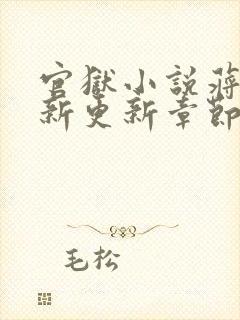 官獄小說蔣
新更新章節
毛松